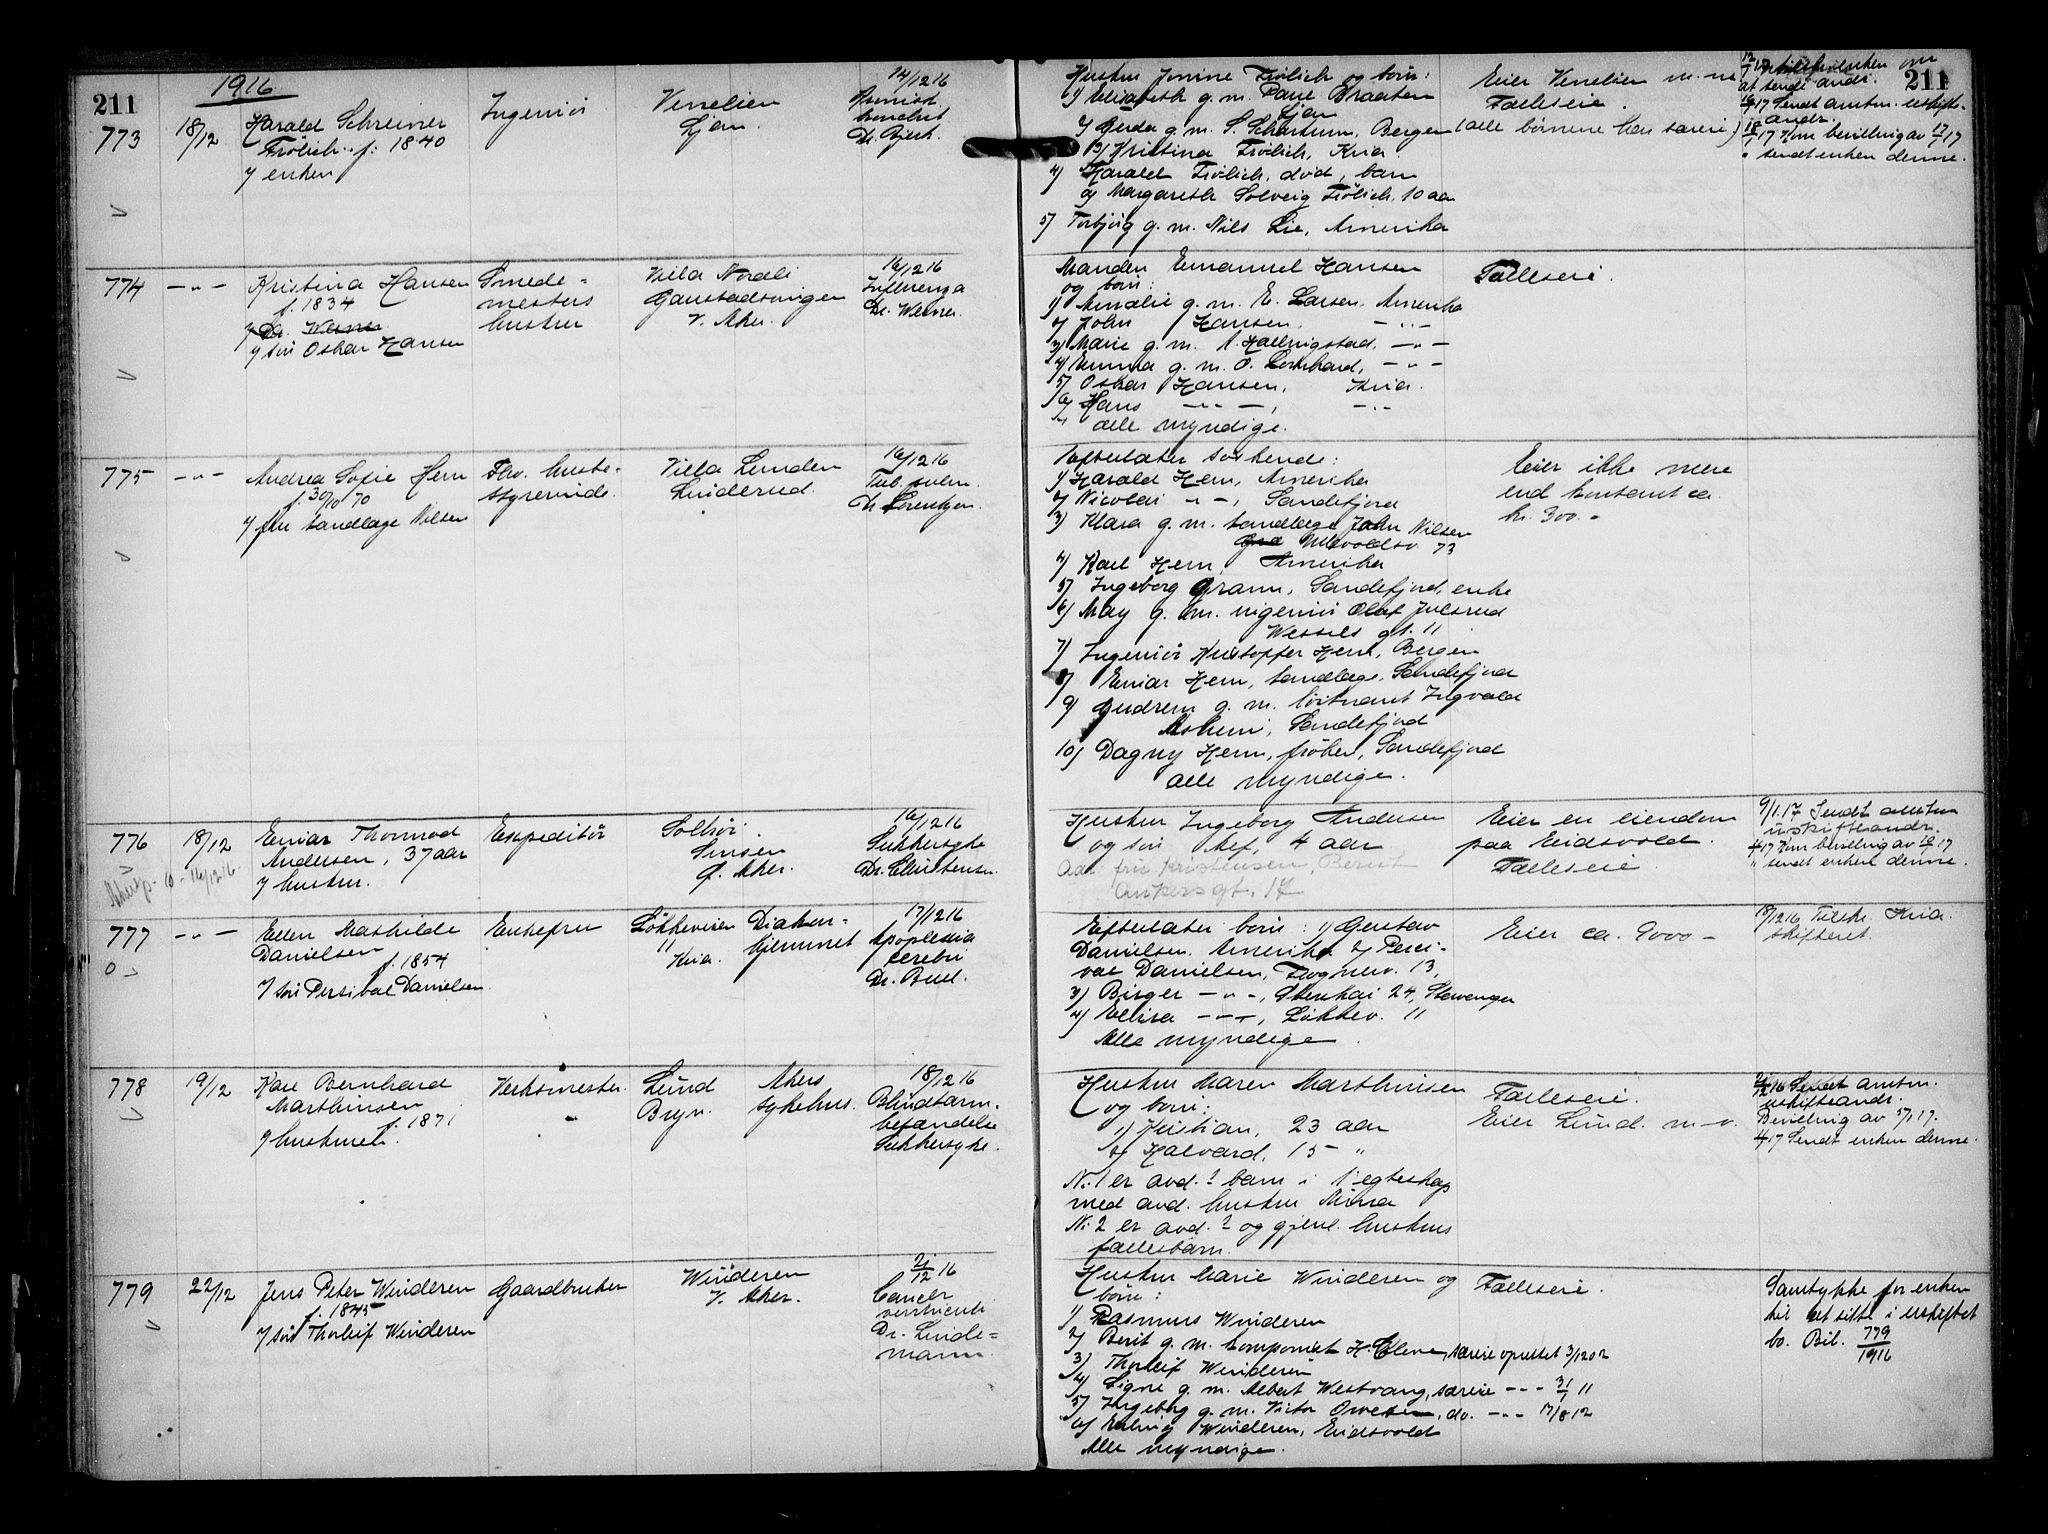 211
1916
773
18/12
Harald Schreiner
Frölich f. 1840
v/ enken
Ingeniör
Venelien
Ljan.
14/12 16
Dr. Bjerk
Hustru Jonine Frölich og börn:
1) Elisabeth g. m. Paul Braaten
Ljan
2) Gerda g. m. S. Schartum, Bergen
3) Kristina Frölich, Kria.
4) Harald Frölich, död, barn
Margareth Solveig Frölich, 10 aar
5) Torbjörg g. m. Nils Lie, Amerika
Eier Venelien m. m.
Fælleseie.
(alle börnene har særeie)
211
at sende andr.
17 Sendt amtm. uskifte-
andr.
17 Kom bevilling av
sendt enken denne.
774
— " —
Kristina Hansen
f. 1834
v/ Dr. Werner
v/ sön Oskar Hansen
Smede-
mesters
hustru
Villa Nordli
Gaustadsvingen
V. Aker.
16/12 16
Influenza
Dr. Werner.
Manden Emanuel Hansen
og börn:
1) Amalie g. m. E. Larsen, Amerika
2) John Hansen. — " —
3) Marie g. m. A. Hallingstad, — " —
4) Emma g. m. O. — " —
5) Oskar Hansen, Kria.
6) Hans — " —, — " —
alle myndige.
Fælleseie.
775
— " —
Andrea Sofie Hem
f. 30/10 70
v/ fru tandlæge Nilsen
Fhv. huste-
styrerinde.
Villa Lunden
Linderud.
16/12 16
Tub. pulm.
Dr Lorentzen.
Efterlater söskende:
1) Harald Hem, Amerika
2) Nicolai — " —, Sandefjord
3) Klara g. m. tandlæge John Nilsen
Ullevoldsv. 73
4) Karl Hem, Amerika
5) Ingeborg Gram, Sandefjord, enke
6) May g. m. ingeniör Olaf Julsrud
Wessels gt. 11
7) Ingeniör Kristoffer Hem, Bergen
8) Einar Hem, tandlæge, Sandefjord
9) Gudrun g. m. löitnant Ingvald
Sandefjord
10) Dagny Hem, fröken, Sandefjord
alle myndige.
Eier ikke mere
end kontant ca.
kr. 300.-
776
18/12
Einar Thormod
Andersen, 37 aar
v/ hustru.
Expeditör
Solhöi
Sinsen
Ø. Aker.
16/12 16
Sukkersyke
Dr. Christensen.
Hustru Ingeborg Andersen
og sön Leif, 4 aar
Adr. fru Kristensen, Bernt
Ankersgt. 17
Eier en eiendom
paa Eidsvold.
Fælleseie.
9/1.17 Sendt amtm
uskifteandr.
17 Kom bevilling av
" sendt enken denne.
777
— " —
Ellen Mathilde
Danielsen
f. 1854
v/ sön Persival Danielsen
Enkefru
Løkkeveien
11
Kria.
Diakon-
hjemmet
17/12 16
Apoplexia
cerebri
Dr. Bull.
Efterlater börn: 1) Gustav
Danielsen, Amerika 2) Persi-
val Danielsen, Frognerv. 13,
3) Birger — " —, Stenkai 24, Stavanger
4) Ellisa — " —, Løkkev. 11
Alle myndige.
Eier ca. 9000 —
18/12 16 Tilskr. Kria.
skifteret.
778
19/12
Karl Bernhard
Marthinsen
f. 1871
v/ hustruen.
Verksmester.
Lund
Bryn.
Akers
sykehus.
18/12 16
Blindtarm-
betændelse
Sukkersyke.
Hustru Maren Marthinsen
og börn:
1) Kristian, 23 aar
2) Halvard, 15 "
No. 1 er avd.? barn i 1' egteskap
med avd. hustru Mina
No. 2 er avd.? og gjenl. hustrus
fællesbarn.
Fælleseie.
Eier Lund. m. v.
16 Sendt amtm.
uskifteandr.
Bevilling av 5/1.17.
17 Sendt enken denne.
779
22/12
Jens Peter Winderen
f. 1845
v/ sön Thorleif Winderen
Gaardbruker
Winderen
V. Aker.
21/12 16
Cancer
ventriculi
Dr. Linde-
mann.
Hustru Marie Winderen og
börn:
1) Rasmus Winderen
2) Berit g. m. komponist H. Cleve, særeie oprettet 3/12 02
3) Thorleif Winderen
4) Signe g. m. Albert Westvang, særeie — " — 31/1 11
5) Ingeborg g. m. Victor, do. — " — 17/8 12
6) Erling Winderen, Eidsvold
Alle myndige.
Fælleseie.
Samtykke for enken
til at sitte i uskiftet
bo. Bil. 779/1916